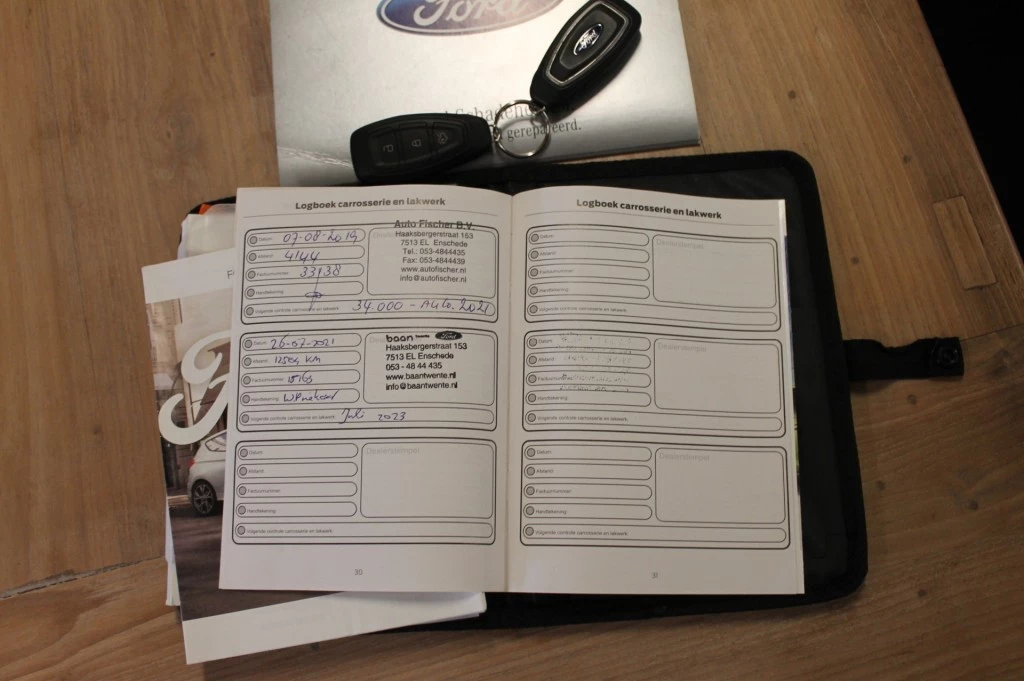 Ford
gerepareerd.
Logboek carrosserie en lakwerk
Datum 07-08-2019
Afstand 4144
Factuurnummer 33138
Handtekening
Volgende controle carrosserie en lakwerk 34.000 - Aug. 2021
Auto Fischer B.V.
Haaksbergerstraat 153
7513 EL Enschede
Tel.: 053-4844435
Fax: 053-4844439
www.autofischer.nl
info@autofischer.nl
Datum 26-07-2021
Afstand 12504 KM
Factuurnummer 15163
Handtekening
Volgende controle carrosserie en lakwerk Juli 2023
baan twente Ford
Haaksbergerstraat 153
7513 EL Enschede
053 - 48 44 435
www.baantwente.nl
info@baantwente.nl
Datum
Afstand
Factuurnummer
Handtekening
Volgende controle carrosserie en lakwerk
Dealerstempel
30
Logboek carrosserie en lakwerk
Datum
Afstand
Factuurnummer
Handtekening
Volgende controle carrosserie en lakwerk
Dealerstempel
Datum
Afstand
Factuurnummer
Handtekening
Volgende controle carrosserie en lakwerk
Dealerstempel
Datum
Afstand
Factuurnummer
Handtekening
Volgende controle carrosserie en lakwerk
Dealerstempel
31